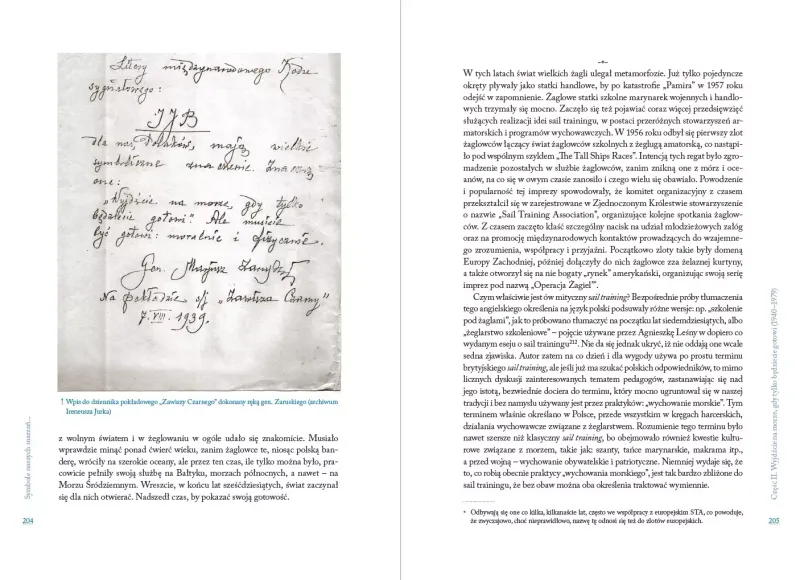 Litery międzynarodowego Kodu
sygnałowego:
IJB
dla nas, Polaków, mają wielkie
symboliczne znaczenie. Znaczą
one:
„Wyjdźcie na morze, gdy tylko
będziecie gotowi”. Ale musicie
być gotowi: moralnie i fizycznie.
Gen. Mariusz Zaruski
Na pokładzie s/j „Zawisza Czarny”
7.VIII.1939.
↑ Wpis do dziennika pokładowego „Zawiszy Czarnego” dokonany ręką gen. Zaruskiego (archiwum
Ireneusza Jurka)
z wolnym światem i w żeglowaniu w ogóle udało się znakomicie. Musiało
wprawdzie minąć ponad ćwierć wieku, zanim żaglowce te, niosąc polską ban-
derę, wróciły na szerokie oceany, ale przez ten czas, ile tylko można było, pra-
cowicie pełniły swoją służbę na Bałtyku, morzach północnych, a nawet – na
Morzu Śródziemnym. Wreszcie, w końcu lat sześćdziesiątych, świat zaczynał
się dla nich otwierać. Nadszedł czas, by pokazać swoją gotowość.
Symbole naszych marzeń...
204
W tych latach świat wielkich żagli ulegał metamorfozie. Już tylko pojedyncze
okręty pływały jako statki handlowe, by po katastrofie „Pamira” w 1957 roku
odejść w zapomnienie. Żaglowe statki szkolne marynarek wojennych i handlo-
wych trzymały się mocno. Zaczęło się też pojawiać coraz więcej przedsięwzięć
służących realizacji idei sail trainingu, w postaci przeróżnych stowarzyszeń ar-
matorskich i programów wychowawczych. W 1956 roku odbył się pierwszy zlot
żaglowców łączący świat żaglowców szkolnych z żeglugą amatorską, co nastąpi-
ło pod wspólnym szyldem „The Tall Ships Races”. Intencją tych regat było zgro-
madzenie pozostałych w służbie żaglowców, zanim znikną one z mórz i oce-
anów, na co się w owym czasie zanosiło i czego wielu się obawiało. Powodzenie
i popularność tej imprezy spowodowały, że komitet organizacyjny z czasem
przekształcił się w zarejestrowane w Zjednoczonym Królestwie stowarzyszenie
o nazwie „Sail Training Association”, organizujące kolejne spotkania żaglow-
ców. Z czasem zaczęto kłaść szczególny nacisk na udział młodzieżowych załóg
oraz na promocję międzynarodowych kontaktów prowadzących do wzajemne-
go zrozumienia, współpracy i przyjaźni. Początkowo zloty takie były domeną
Europy Zachodniej, później dołączyły do nich żaglowce zza żelaznej kurtyny,
a także otworzył się na nie bogaty „rynek” amerykański, organizując swoją serię
imprez pod nazwą „Operacja Żagiel”*.
Czym właściwie jest ów mityczny sail training? Bezpośrednie próby tłumaczenia
tego angielskiego określenia na język polski podsuwały różne wersje: np. „szkolenie
pod żaglami”, jak to próbowano tłumaczyć na początku lat siedemdziesiątych, albo
„żeglarstwo szkoleniowe” – pojęcie używane przez Agnieszkę Leśny w dopiero co
wydanym eseju o sail trainingu²¹². Nie da się jednak ukryć, iż nie oddają one wcale
sedna zjawiska. Autor zatem na co dzień i dla wygody używa po prostu terminu
brytyjskiego sail training, ale jeśli już ma szukać polskich odpowiedników, to mimo
licznych dyskusji zainteresowanych tematem pedagogów, zastanawiając się nad
jego istotą, bezwiednie dociera do terminu, który mocno ugruntował się w naszej
tradycji i bez namysłu używany jest przez praktyków: „wychowanie morskie”. Tym
terminem właśnie określano w Polsce, przede wszystkim w kręgach harcerskich,
działania wychowawcze związane z żeglarstwem. Rozumienie tego terminu było
nawet szersze niż klasyczny sail training, bo obejmowało również kwestie kultu-
rowe związane z morzem, takie jak szanty, tańce marynarskie, makrama itp.,
a przed wojną – wychowanie obywatelskie i patriotyczne. Niemniej wydaje się,
to, co robią obecnie praktycy „wychowania morskiego”, jest tak bardzo zbliżone do
sail trainingu, że bez obaw można oba określenia traktować wymiennie.
* Odbywają się one co kilka, kilkanaście lat, często we współpracy z europejskim STA, co powoduje,
że zwyczajowo, choć nieprawidłowo, nazwę tę odnosi się też do zlotów europejskich.
Część II. Wyjdźcie na morze, gdy tylko będziecie gotowi (1940–1979)
205